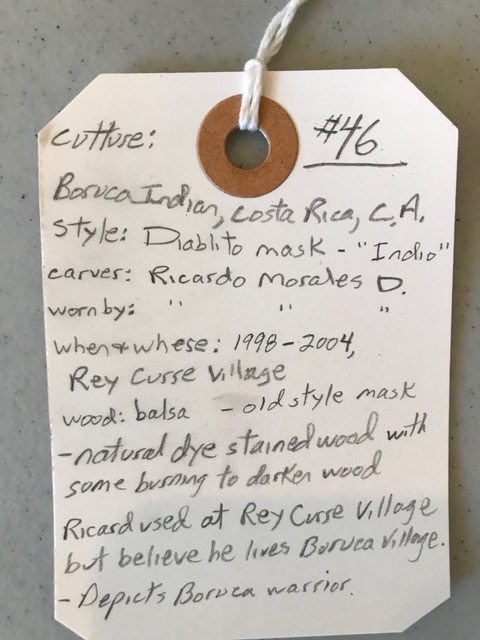 #46
Culture:
Boruca Indian, Costa Rica, C.A.
Style: Diablito mask - "Indio"
carver: Ricardo Morales D.
worn by: " " "
when & where: 1998-2004,
Rey Curre Village
wood: balsa - old style mask
- natural dye stained wood with
some burning to darken wood
Ricard used at Rey Curre Village
but believe he lives Boruca Village.
- Depicts Boruca warrior.